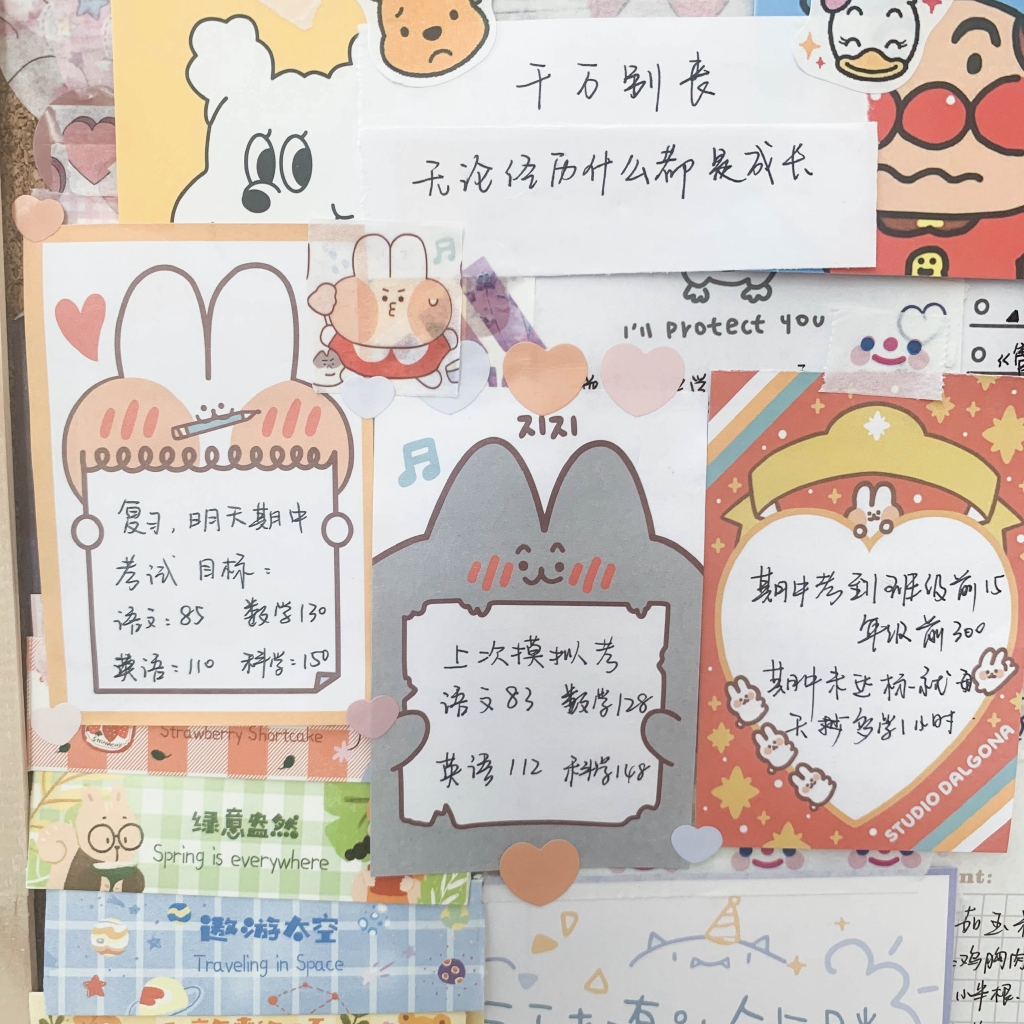 千万别丧
无论经历什么都是成长
I'll protect you
지지
复习,明天期中
考试 目标:
语文:85 数学130
英语:110 科学:150
上次模拟考
语文83 数学128
英语112 科学148
期中考到班级前15
年级前300
期中未达标就每
天抄多学1小时.
STUDIO DALGONA
Strawberry Shortcake
绿意盎然
Spring is everywhere
遨游太空
Traveling in Space
nt:
鸡胸肉
小半根.